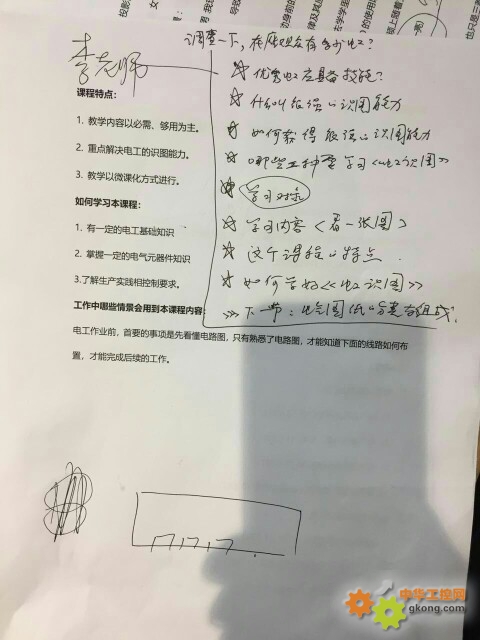 调查一下，在座观众有多少电工？
李老师
☆ 优秀电工应具备技能？
☆ 什么叫较强的识图能力
☆ 如何获得较强的识图能力
☆ 哪些工种要学习《电工识图》
☆ 学习对象
☆ 学习内容〈看一张图〉
☆ 这个课程的特点.
☆ 如何学好《电工识图》
>>> 下一节：电气图纸的分类与组成.
课程特点：
1. 教学内容以必需、够用为主。
2. 重点解决电工的识图能力。
3. 教学以微课化方式进行。
如何学习本课程：
1. 有一定的电工基础知识
2. 掌握一定的电气元器件知识
3.了解生产实践相控制要求。
工作中哪些情景会用到本课程内容：
电工作业前，首要的事项是先看懂电路图，只有熟悉了电路图，才能知道下面的线路如何布
置，才能完成后续的工作。
中华工控网
gkong.com